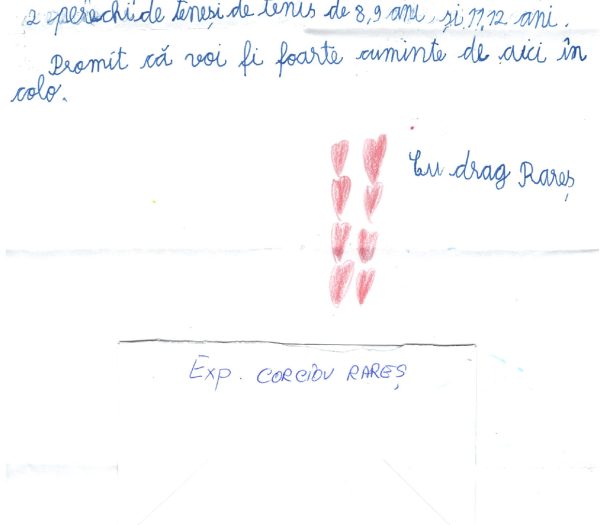 2 perechi de teneși de tenis de 8,9 ani, și 11,12 ani.
Promit că voi fi foarte cuminte de aici în
colo.
Cu drag Rareș
Exp. CORCIOV RAREȘ